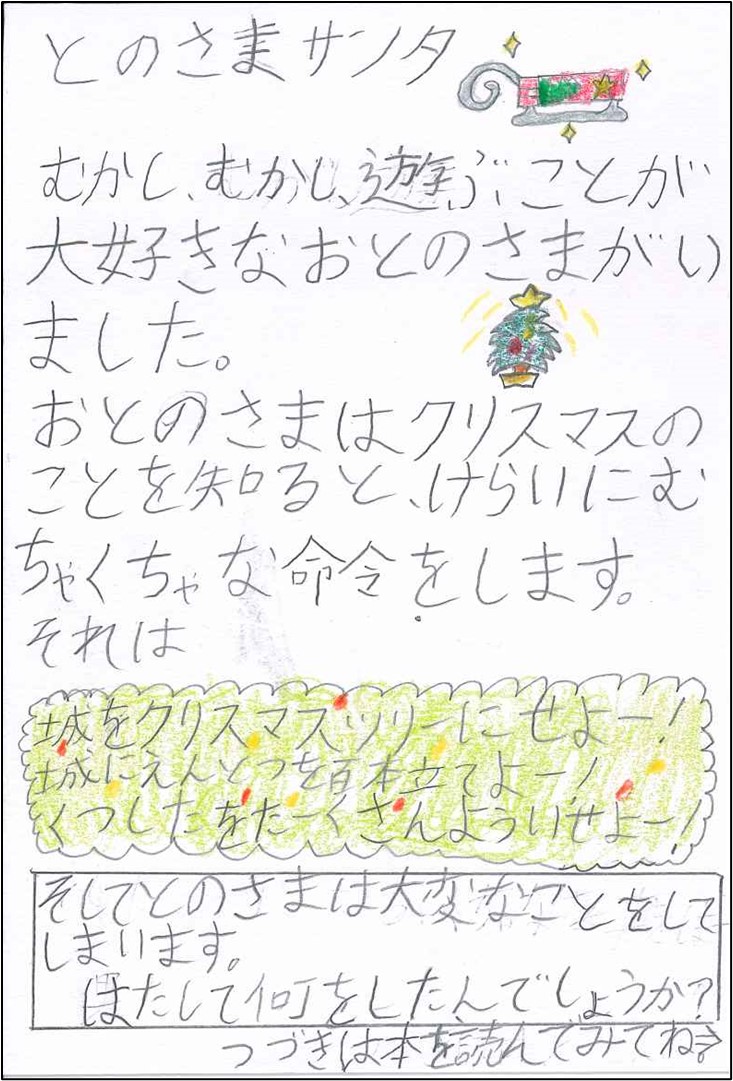 とのさまサンタ
むかし、むかし、遊ぶことが
大好きなおとのさまがい
ました。
おとのさまはクリスマスの
ことを知ると、けらいにむ
ちゃくちゃな命令をします。
それは
城をクリスマスツリーにせよー!
城にえんとつを百本立てよー!
くつしたをたーくさんよういせよー!
そしてとのさまは大変なことをして
しまいます。
はたして何をしたんでしょうか?
つづきは本を読んでみてね⇒